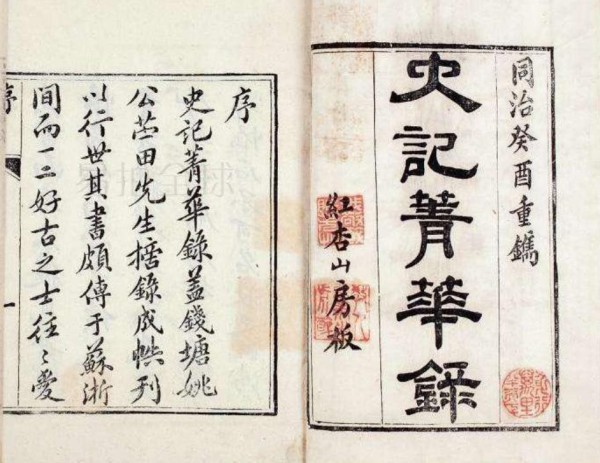 同治癸酉重鐫
史記菁華錄
紅杏山房板
序
史記菁華錄蓋錢塘姚
公苎田先生摿錄成帙刊
以行世其書頗傳于蘇浙
間而一二好古之士往〻愛
序
一